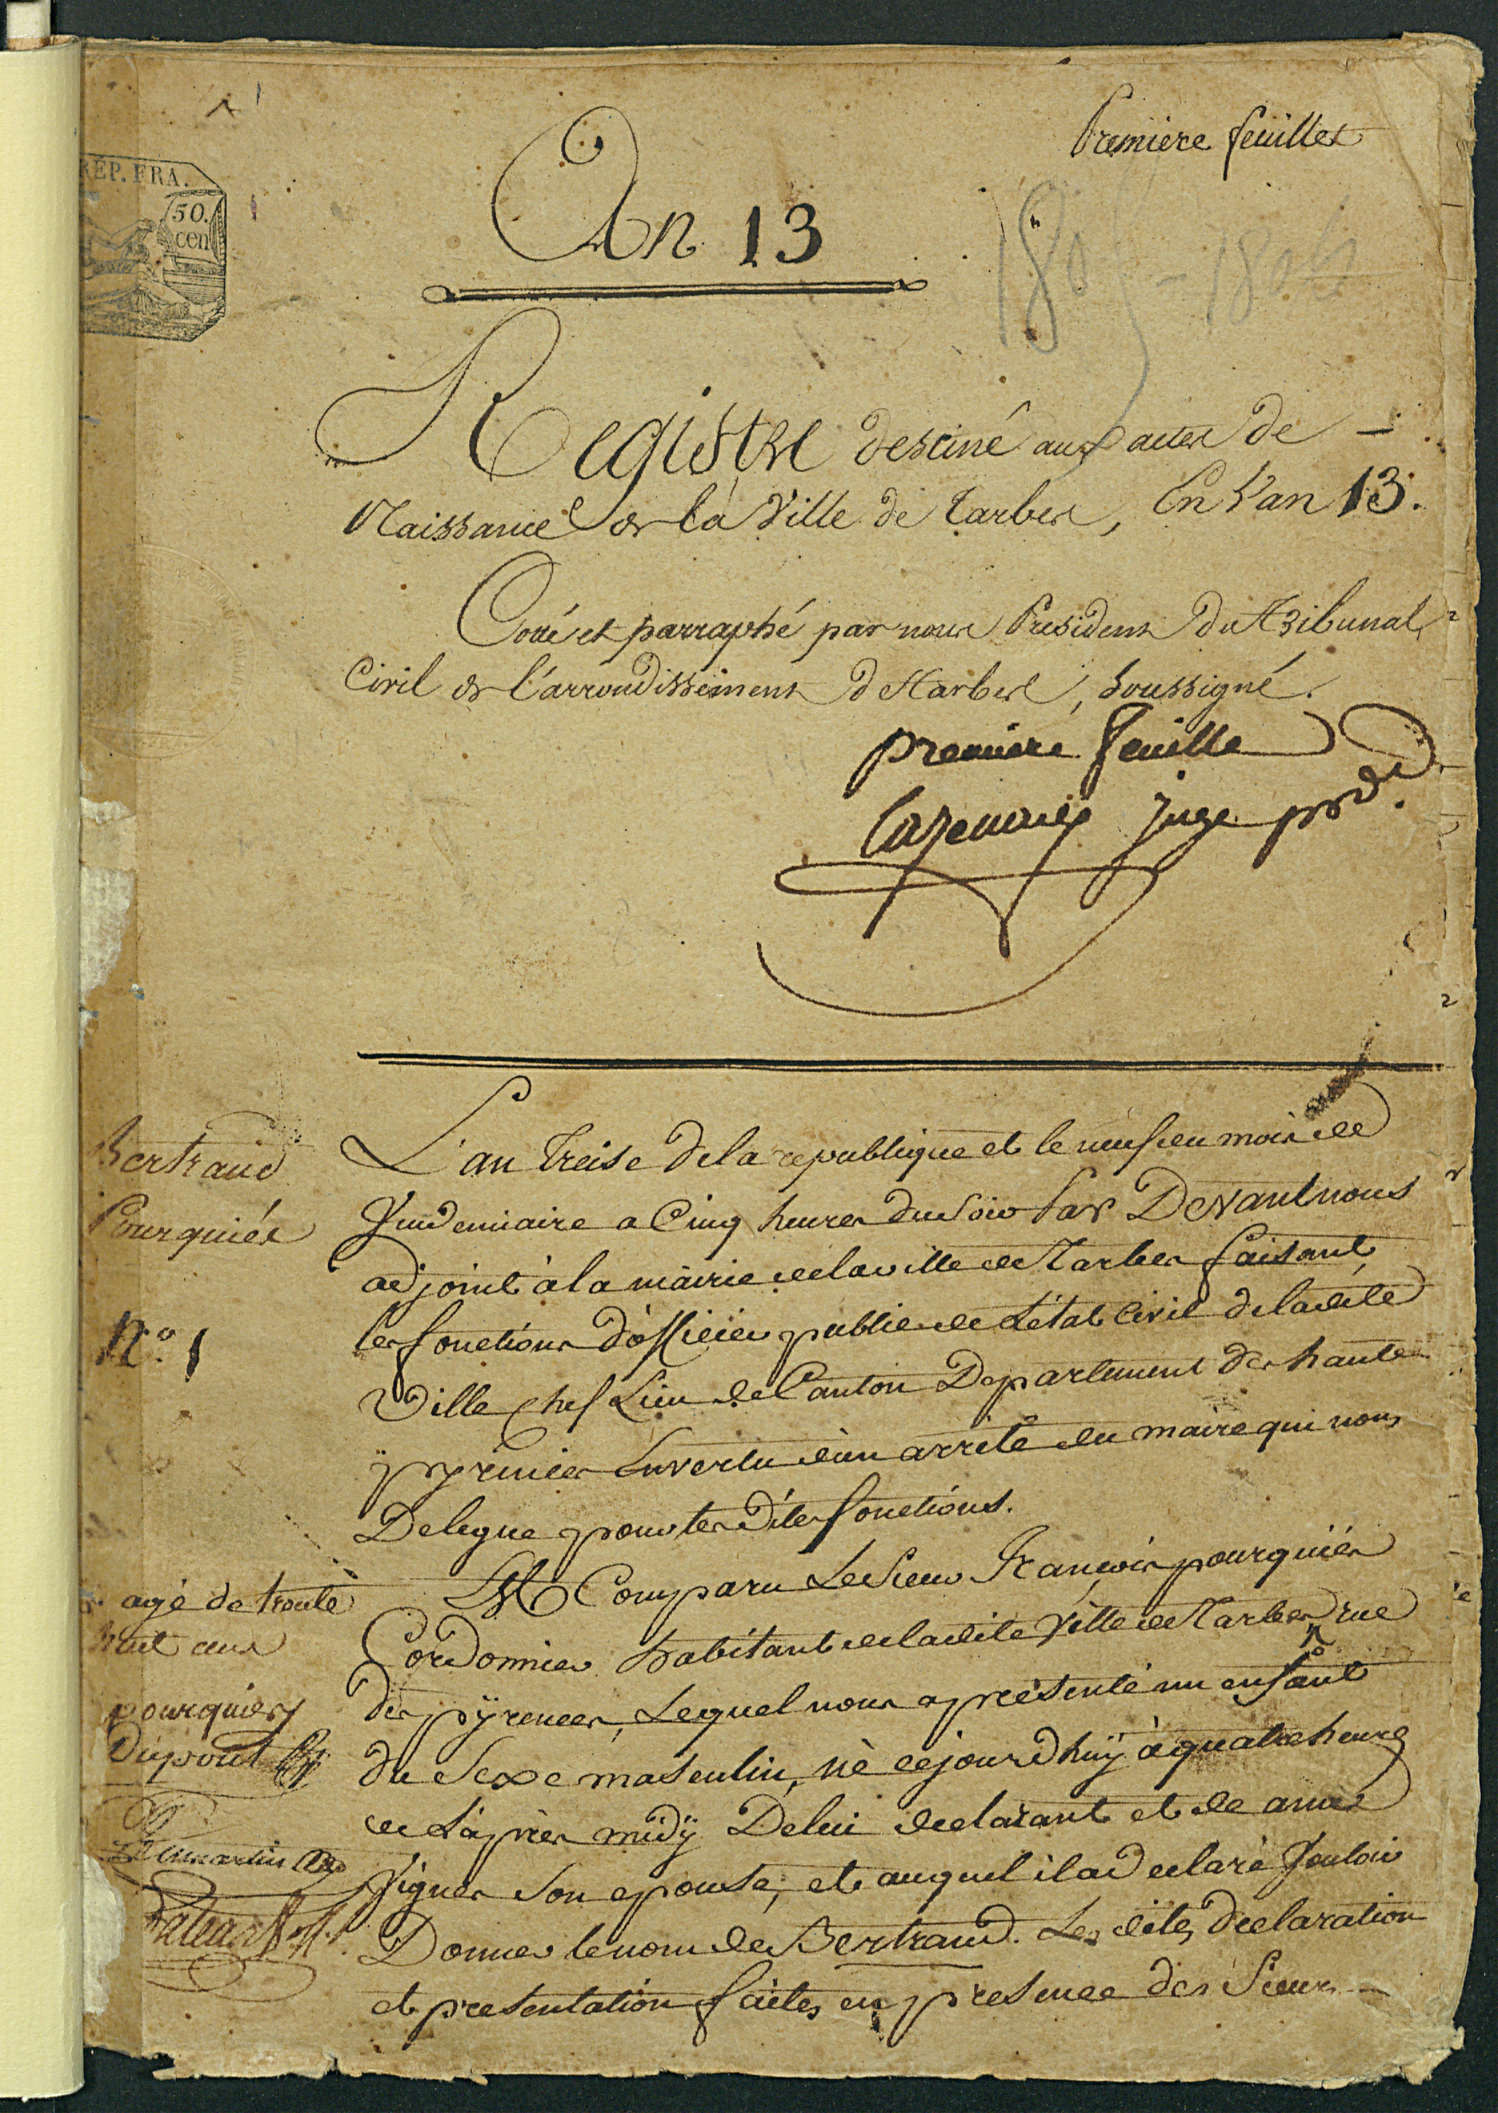 Premiere feuille
REP. FRA.
50.
cen
An 13
180 - 1804
Registre destiné aux actes de -
Naissance de la Ville de Tarbes, En l'an 13.
Coté et parraphé par nous President du Tribunal
Civil de l'arrondissement de Tarbes, soussigné.
premiere feuille
juge
Bertrand
Pourquiés
N.º 1
L'an treise de la republique et le neuf du mois de
Vendemiaire a Cinq heures du Soir Par Devant nous
adjoint à la mairie de la ville de Tarbes faisant
les fonctions d'officier public de L'état Civil de la dite
Ville Chef Lieu de Canton Departement des hautes
pyrenées En vertu d'un arrêté du maire qui nous
Delegue pour les dites fonctions.
Est Comparu Le Sieur François pourquiés
Cordonnier habitant de la dite Ville de Tarbes rue
des pÿrenees, Lequel nous a presenté un enfant
du Sexe masculin, né cejourdhuÿ à quatre heures
de L'après midÿ De lui declarant et de
son epouse, et auquel il a declaré Vouloir
Donner le nom de Bertrand. Les dites declaration
et presentation faites en presence des Sieurs
agé de trente
huit ans
pourquiés
Dupont